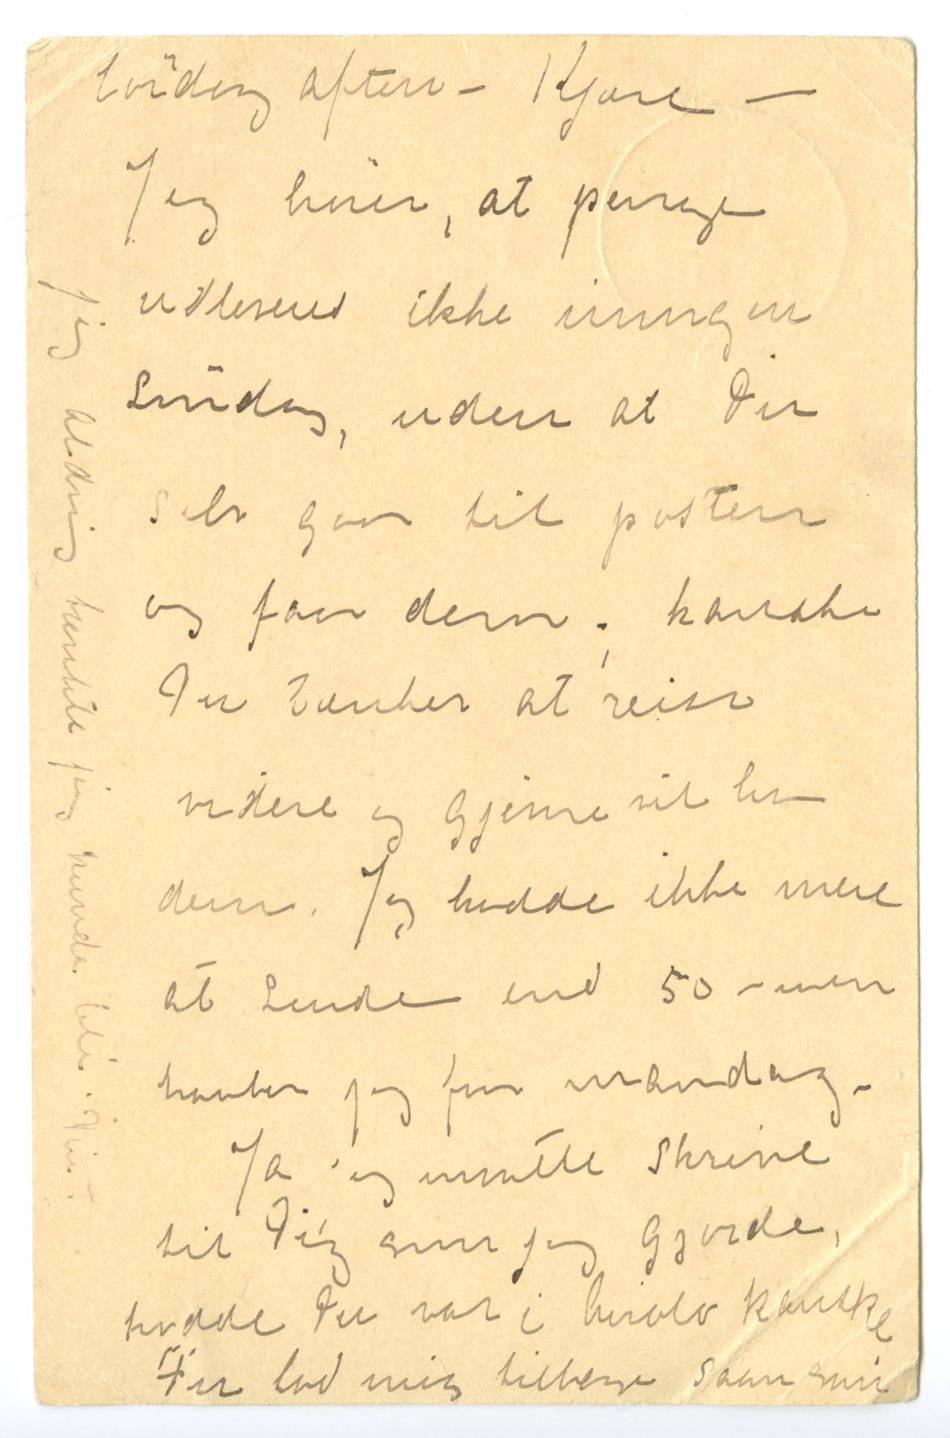 Lördag aften – Kjære –
Jeg hörer, at penge
udleveres ikke imorgen
Söndag, uden at Du
selv gaar til posten
og faar dem; kanske
Du tænker at reise
videre og gjerne vil ha
dem. Jeg hadde ikke mere
at sende end 50 – men
haaber jeg faar mandag. –
Ja jeg maatte skrive
til Dig som jeg gjorde,
hadde Du vat i kanske
Du lod mig tilbage saan som
jeg aldrig tænkte jeg kunde bli. Din